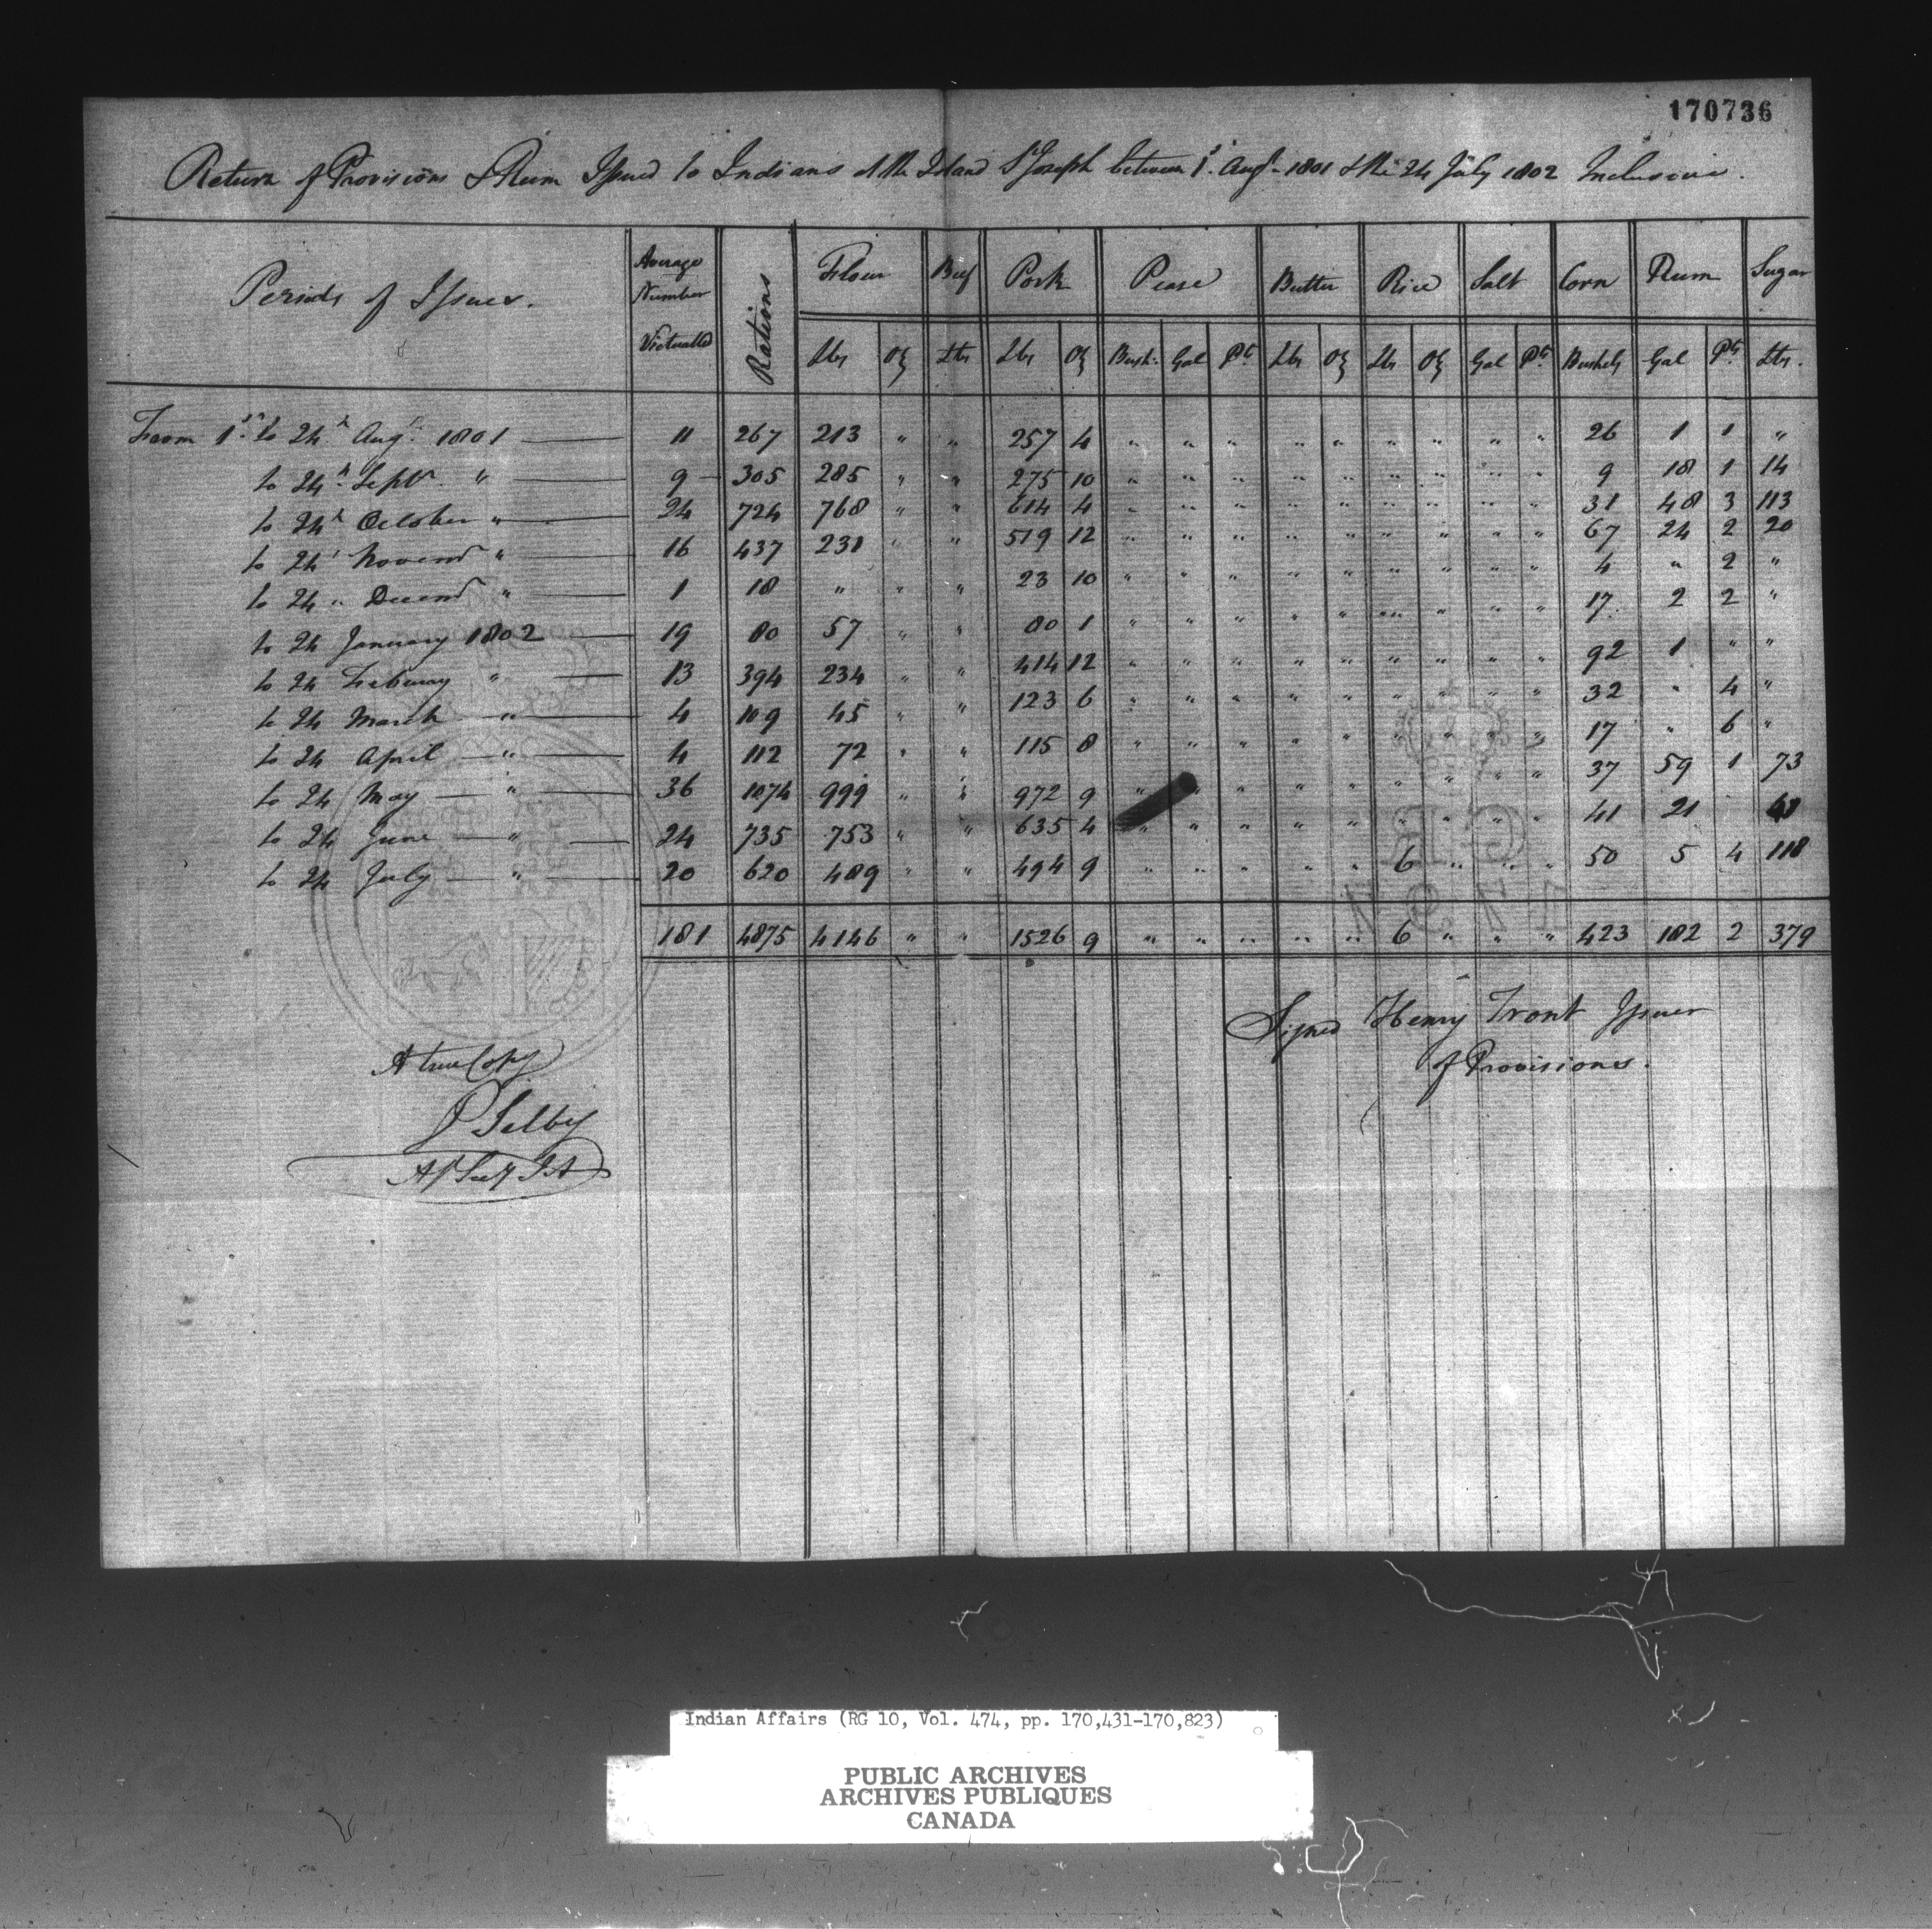 170736
Return of Provisions & Rum Issued to Indians at the Island St Joseph between 1st Augt 1801 & the 24 July 1802 Inclusive.
Periods of Issues. Average Number Victualled Rations Flour Beef Pork Pease Butter Rice Salt Corn Rum Sugar
Lbs Oz Lbs Lbs Oz Bush: Gal Pts Lbs Oz Lbs Oz Gal Pts Bushels Gal Pts Lbs.
From 1st to 24th Augt 1801 11 267 213 " " 257 4 " " " " " " " " " 26 1 1 "
to 24th Septr. " 9 305 285 " " 275 10 " " " " " " " " " 9 18 1 14
to 24th October " 24 724 768 " " 614 4 " " " " " " " " " 31 48 3 113
to 24th Novemr " 16 437 231 " " 519 12 " " " " " " " " " 67 24 2 20
to 24 " Decemr " 1 18 " " " 23 10 " " " " " " " " " 4 " 2 "
to 24 January 1802 19 80 57 " " 80 1 " " " " " " " " " 17 2 2 "
to 24 February " 13 394 234 " " 414 12 " " " " " " " " " 92 1 " "
to 24 March " 4 109 45 " " 123 6 " " " " " " " " " 32 " 4 "
to 24 April " 4 112 72 " " 115 8 " " " " " " " " " 17 " 6 "
to 24 May " 36 1074 999 " " 972 9 " " " " " " " " " 37 59 1 73
to 24 June " 24 735 753 " " 635 4 " " " " " " " " " 41 21
to 24 July " 20 620 489 " " 494 9 " " " " " 6 " " " 50 5 4 118
181 4875 4146 " " 1526 9 " " " " " 6 " " " 423 182 2 379
Signed Henry Front Issuer
of Provisions.
A true Copy
P Selby
At Secy I A
Indian Affairs (RG 10, Vol. 474, pp. 170,431-170,823)
PUBLIC ARCHIVES
ARCHIVES PUBLIQUES
CANADA